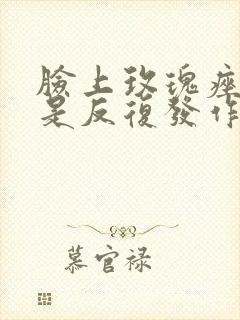 臉上玫瑰痤
是反復發作
慕官禄